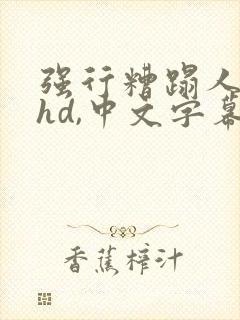 强行糟蹋人
hd,中文字幕
香蕉榨汁